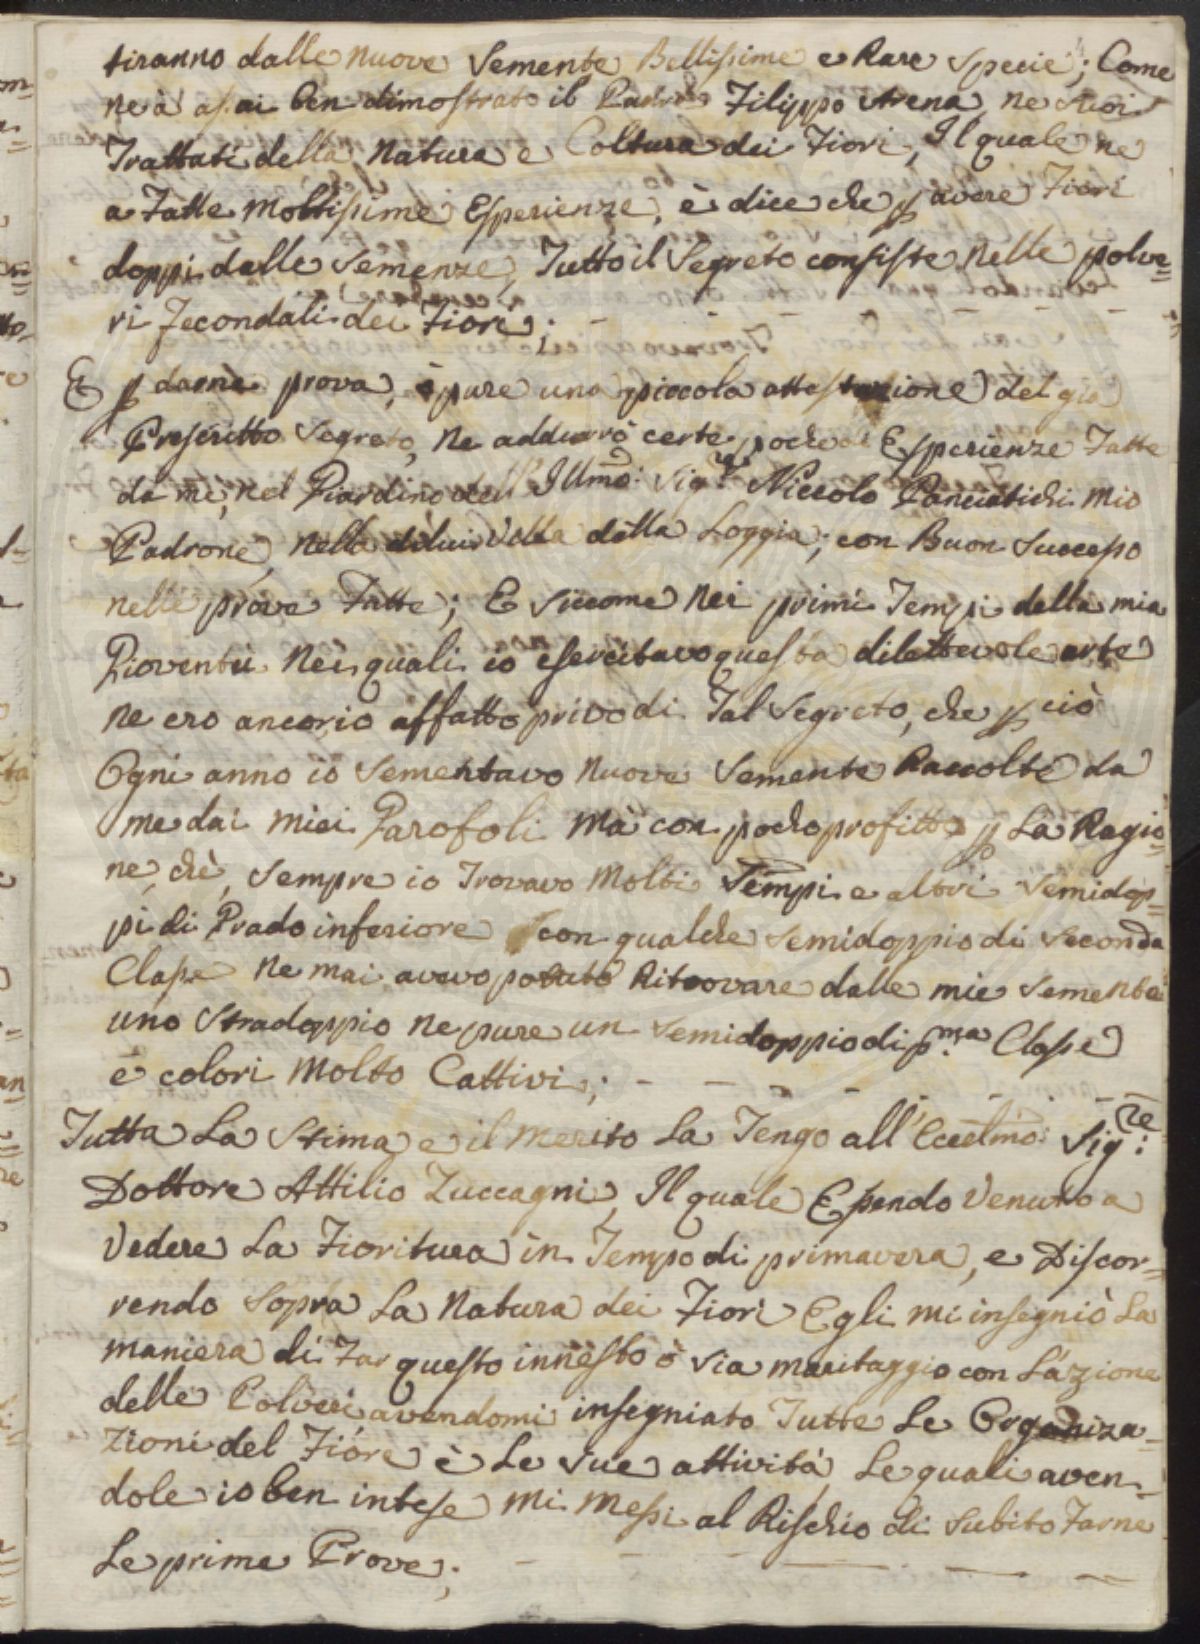 tiranno dalle nuove Semente Bellissime e Rare Specie; Come
ne à assai ben dimostrato il Padre Filippo Arena ne suoi
Trattati della Natura e Coltura dei Fiori, Il quale ne
a Fatte moltissime Esperienze, è dice che p avere Fiori
doppi dalle Semenze, Tutto il Segreto consiste nelle polve=
ri Fecondali dei Fiori;
E p darne prova, ò pure una piccola attestazione del già
Prescritto Segreto, ne addurrò certe poche Esperienze Fatte
da me, nel Giardino dell' Illmo: Sigre Niccolo Panciatichi mio
Padrone, nella di lui Villa della Loggia; con Buon Successo
nelle prove Fatte; E Siccome nei primi Tempi della mia
Gioventù nei quali io esercitavo questa dilettevole arte
ne ero ancor io affatto privo di Tal Segreto, che p ciò
Ogni anno io Sementavo nuove Semente Raccolte da
me dai miei Garofoli mà con pocho profitto p La Ragio=
ne, chè, Sempre io Trovavo Molti Sempi e altri Semidop=
pi di Grado inferiore con qualche Semidoppio di Seconda
Classe ne mai avevo potuto Ritrovare dalle mie Semente
uno Stradoppio ne pure un Semidoppio di p.ma Classe
e colori Molto Cattivi;
Tutta La Stima e il merito La Tengo all' Eccelmo: Sigre:
Dottore Attilio Zuccagni, Il quale Essendo Venuto a
Vedere La Fioritura in Tempo di primavera, e Discor=
rendo Sopra La Natura dei Fiori Egli mi insegniò La
maniera di Far questo innesto ò Sia maritaggio con L'azione
delle Polveri avendomi insegniato Tutte Le Organiza=
zioni del Fiore è Le Sue attività, Le quali aven=
dole io ben intese mi messi al Rischio di Subito Farne
Le prime Prove;